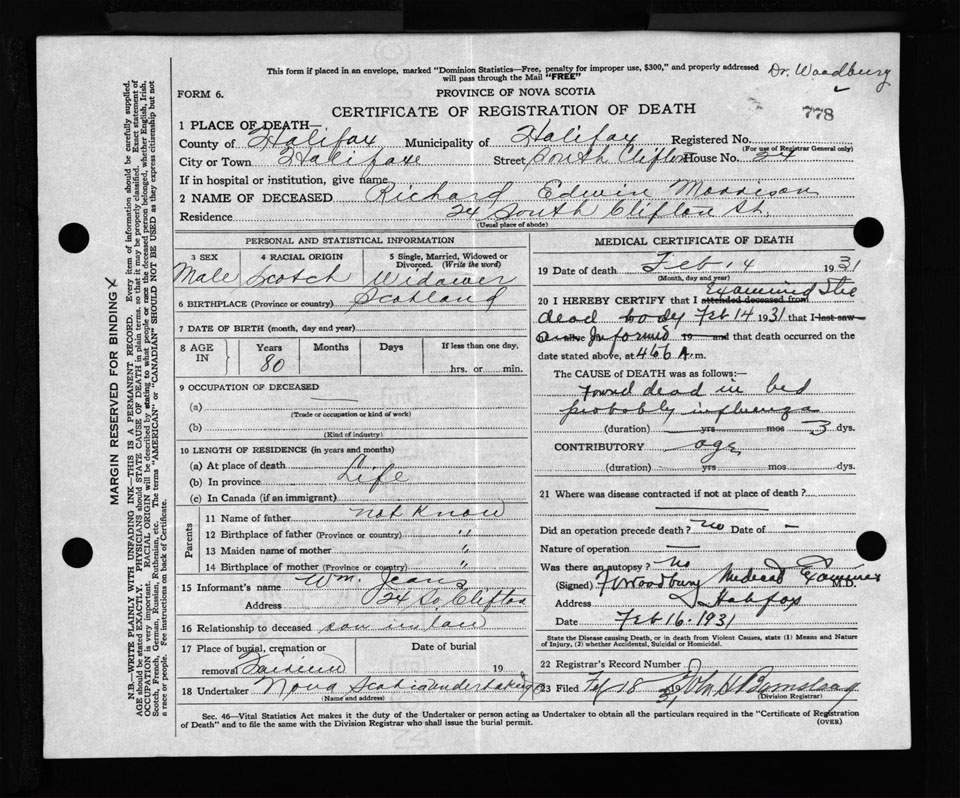 This form if placed in an envelope, marked "Dominion Statistics—Free, penalty for improper use, $300," and properly addressed
will pass through the Mail "FREE"
Dr. Woodbury
FORM 6.
PROVINCE OF NOVA SCOTIA
CERTIFICATE OF REGISTRATION OF DEATH
778
1 PLACE OF DEATH—
County of Halifax Municipality of Halifax Registered No.
(For use of Registrar General only)
City or Town Halifax Street South Clifton House No. 24
If in hospital or institution, give name
2 NAME OF DECEASED Richard Edwin Morrison
Residence 24 South Clifton St.
(Usual place of abode)
PERSONAL AND STATISTICAL INFORMATION
3 SEX 4 RACIAL ORIGIN 5 Single, Married, Widowed or Divorced. (Write the word)
Male Scotch Widower
6 BIRTHPLACE (Province or country) Scotland
7 DATE OF BIRTH (month, day and year)
8 AGE IN Years Months Days If less than one day,
80 hrs. or min.
9 OCCUPATION OF DECEASED
(a) —
(Trade or occupation or kind of work)
(b)
(Kind of industry)
10 LENGTH OF RESIDENCE (in years and months)
(a) At place of death
(b) In province Life
(c) In Canada (if an immigrant)
Parents
11 Name of father not know
12 Birthplace of father (Province or country) "
13 Maiden name of mother "
14 Birthplace of mother (Province or country) "
15 Informant's name Wm. Jeans
Address 24 So Clifton
16 Relationship to deceased son in law
17 Place of burial, cremation or Date of burial
removal Fairview 19
18 Undertaker Nova Scotia undertaking
(Name and address)
MEDICAL CERTIFICATE OF DEATH
19 Date of death Feb 14 1931
(Month, day and year)
20 I HEREBY CERTIFY that I attended deceased from Examined the
dead body Feb 14 1931 that I last saw
Informed 19 and that death occurred on the
date stated above, at 4 6 6 A.m.
The CAUSE of DEATH was as follows:—
Found dead in bed
probably influenza
(duration) yrs mos 3 dys.
CONTRIBUTORY age
(duration) yrs mos dys.
21 Where was disease contracted if not at place of death?
Did an operation precede death? no Date of —
Nature of operation —
Was there an autopsy? No
(Signed) Woodbury Medical Examiner M.D.
Address Halifax
Date Feb 16. 1931
State the Disease causing Death, or in death from Violent Causes, state (1) Means and Nature
of Injury, (2) whether Accidental, Suicidal or Homicidal.
22 Registrar's Record Number
23 Filed Feb 18 31
(Division Registrar)
Sec. 46—Vital Statistics Act makes it the duty of the Undertaker or person acting as Undertaker to obtain all the particulars required in the "Certificate of Registration
of Death" and to file the same with the Division Registrar who shall issue the burial permit.
(OVER)
MARGIN RESERVED FOR BINDING
N.B.—WRITE PLAINLY WITH UNFADING INK—THIS IS A PERMANENT RECORD. Every item of information should be carefully supplied.
AGE should be stated EXACTLY. PHYSICIANS should STATE CAUSE OF DEATH in plain terms, so that it may be properly classified. Exact statement of
OCCUPATION is very important. RACIAL ORIGIN will be described by stating to what people or race the deceased person belonged, whether English, Irish,
Scotch, French, German, Russian, Ruthenian, etc. The terms "AMERICAN" or "CANADIAN" SHOULD NOT BE USED as they express citizenship but not
a race or people. See instructions on back of Certificate.